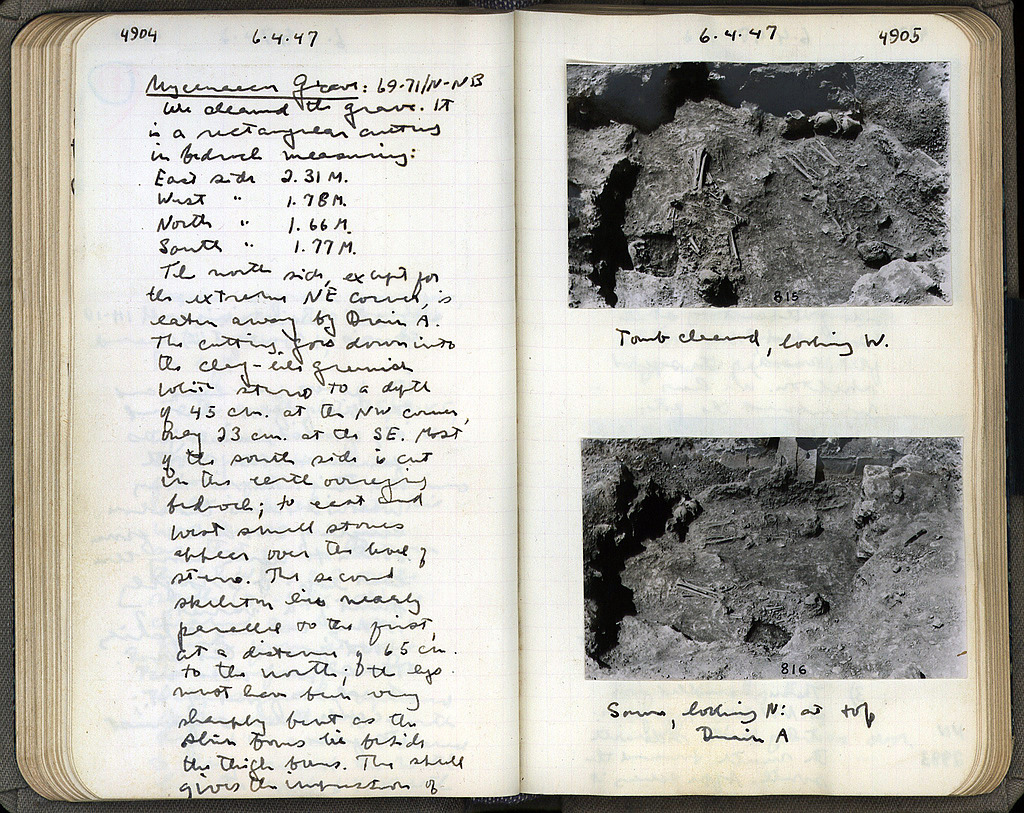 4904 6.4.47
Mycenaean Grave: 69-71/N-NB
We cleaned the grave. It
is a rectangular cutting
in bedrock measuring:
East side 2.31 M.
West " 1.78 M.
North " 1.66 M.
South " 1.77 M.
The north side, except for
the extreme NE corner, is
eaten away by Drain A.
The cutting goes down into
the clay-like greenish
white stereo to a depth
of 45 cm. at the NW corner,
only 23 cm. at the SE. Most
of the south side is cut
in the earth overlying
bedrock; to east and
west small stones
appear over the level of
stereo. The second
skeleton lies nearly
parallel to the first,
at a distance of 65 cm.
to the north; the legs
must have been very
sharply bent as the
shin bones lie beside
the thigh bones. The skull
gives the impression of
6.4.47 4905
815
Tomb cleaned, looking W.
816
Same, looking N: at top
Drain A